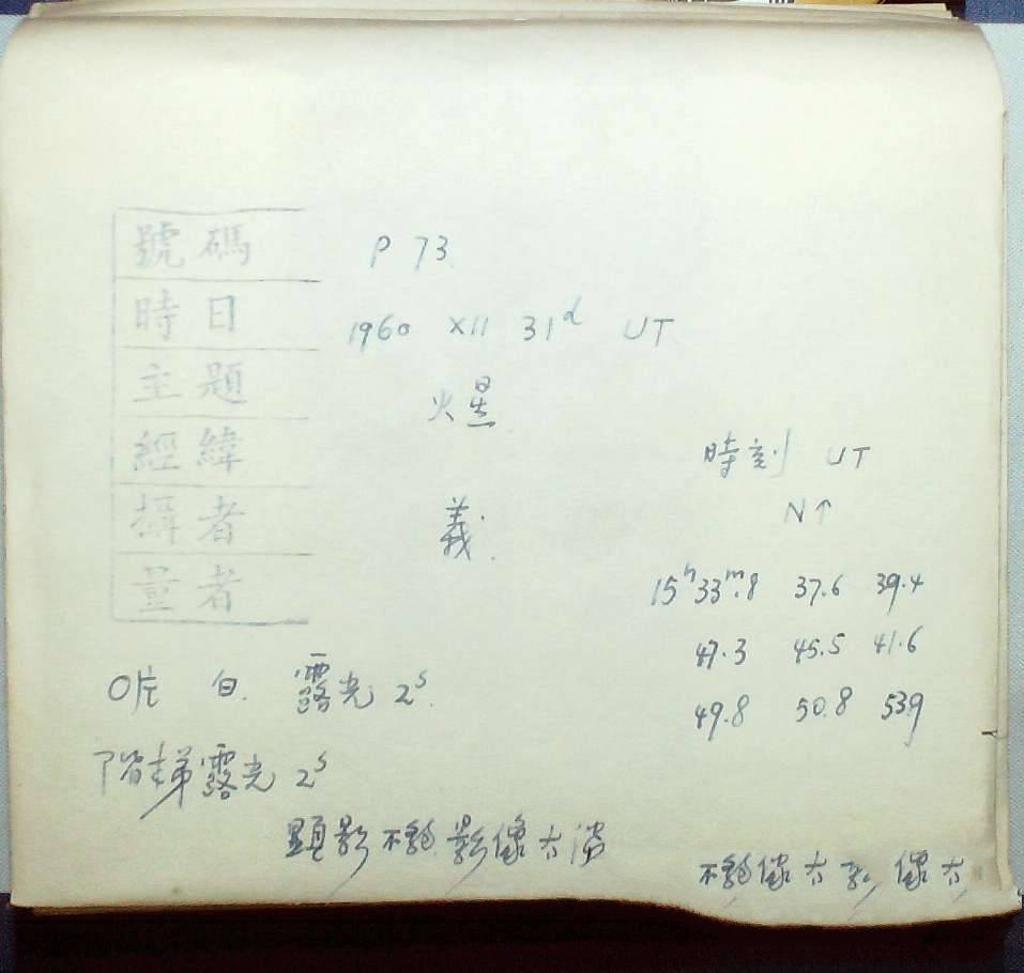 號碼 P 73
時日 1960 XII 31d UT
主題 火星
經緯
攝者 義
量者
時刻 UT
N↑
15h33m.8 37.6 39.4
47.3 45.5 41.6
49.8 50.8 53.9
O片 白. 露光 2s.
階梯露光 2s
顯影不夠 影像太淡
不夠像太 像太